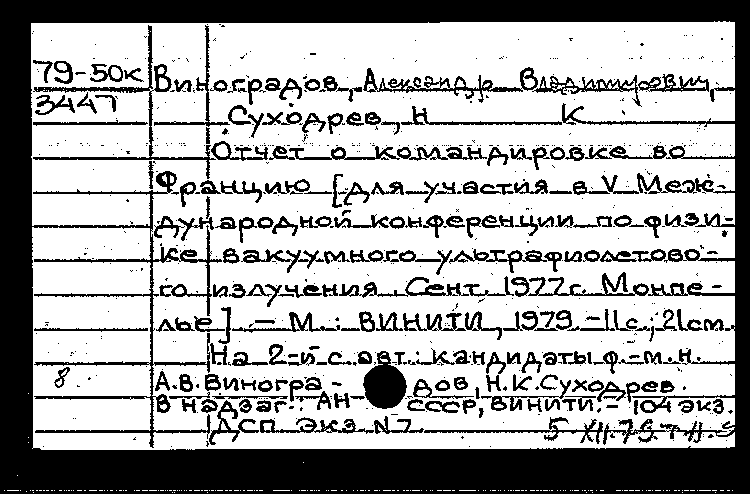 79-50к Виноградов, Александр Владимирович,
3447
Суходрев, Н К
Отчет о командировке во
Францию [для участия в V Меж-
дународной конференции по физи-
ке вакуумного ультрафиолетово-
го излучения. Сент. 1977г. Монпе-
лье] - М.: ВИНИТИ, 1979 -11с.; 21см.
На 2-й с. авт.: кандидаты ф.-м.н.
8 А.В.Виногра- дов, Н.К.Суходрев.
В надзаг.: АН СССР, ВИНИТИ.- 104 экз.
ДСП. Экз. N7. 5 XII.79.